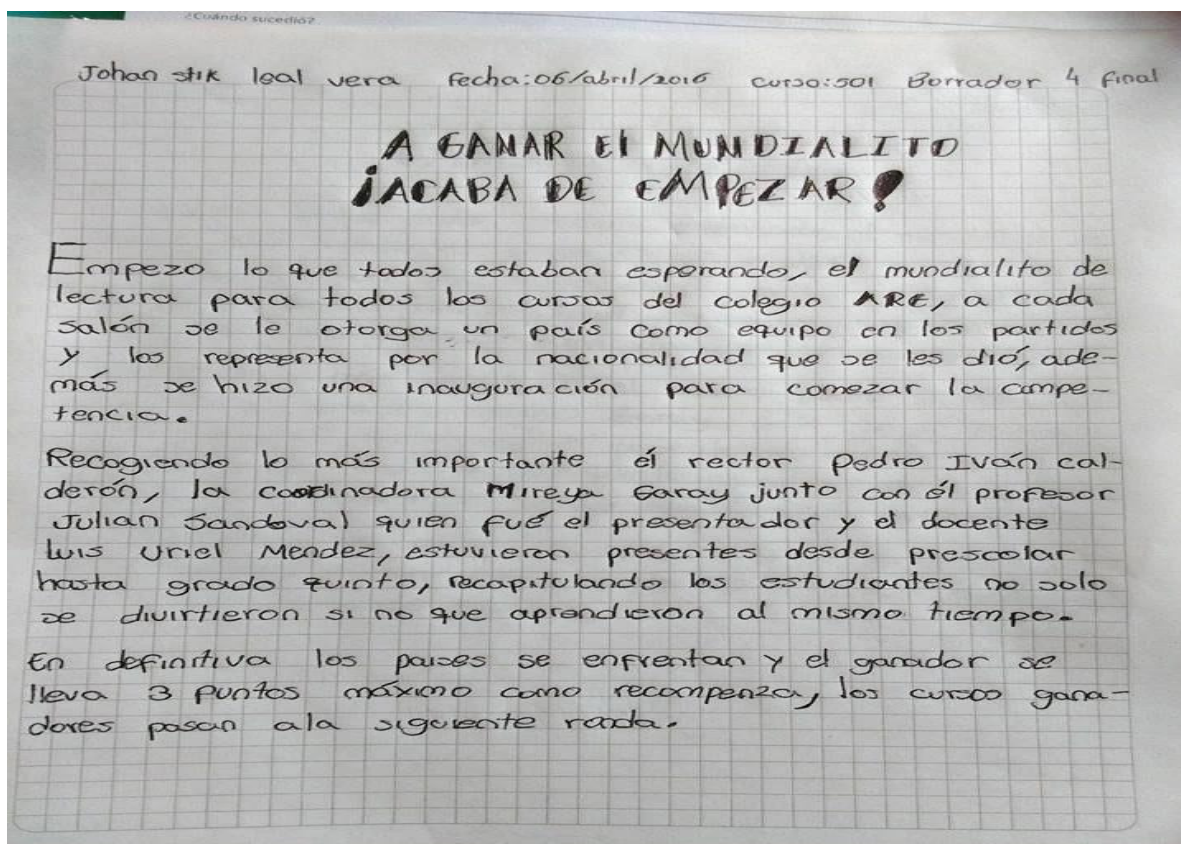 ¿Cuándo sucedió?
Johan stik leal vera fecha:06/abril/2016 curso:501 Borrador 4 final
A GANAR El MUNDIALITO
¡ACABA DE EMPEZAR!
Empezo lo que todos estaban esperando, el mundialito de
lectura para todos los cursos del colegio ARE, a cada
salón se le otorga un país como equipo en los partidos
y los representa por la nacionalidad que se les dió, ade-
más se hizo una inauguración para comezar la compe-
tencia.
Recogiendo lo más importante él rector Pedro Iván cal-
derón, la coordinadora Mireya Garay junto con él profesor
Julian Sandoval quien fué el presentador y el docente
luis Uriel Mendez, estuvieron presentes desde prescolar
hasta grado quinto, recapitulando los estudiantes no solo
se divirtieron si no que aprendieron al mismo tiempo.
En definitiva los paises se enfrentan y el ganador se
lleva 3 puntos máximo como recompenza, los cursos gana-
dores pasan ala siguiente ronda.